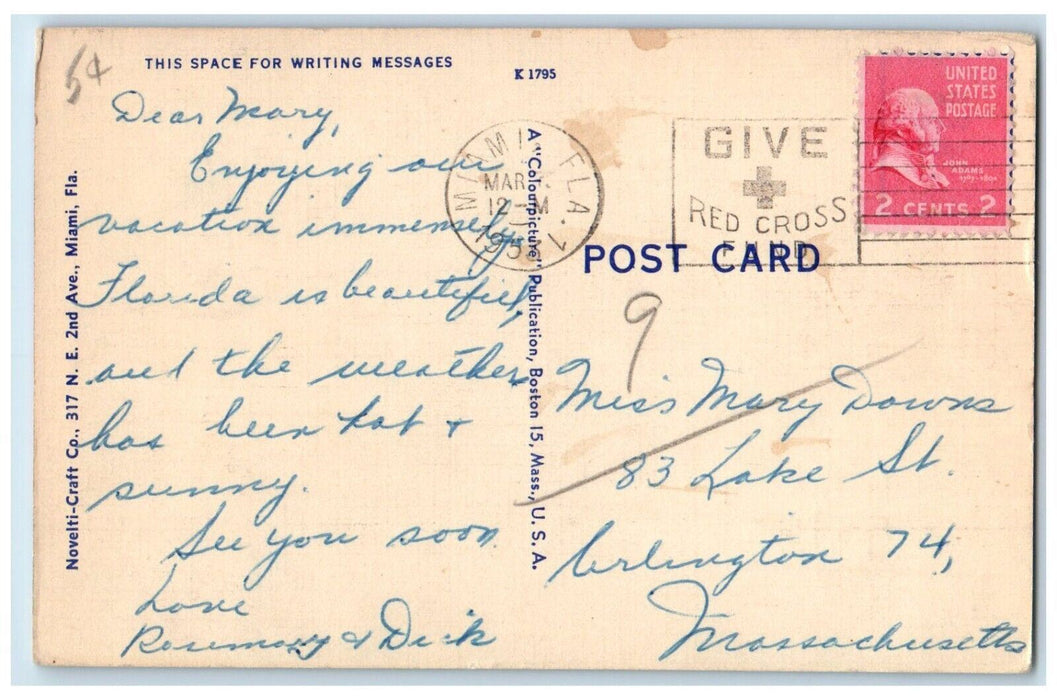 5¢
THIS SPACE FOR WRITING MESSAGES
K 1795
Dear Mary,
Enjoying our
vacation immensely.
Florida is beautiful,
and the weather
has been hot &
sunny.
See you soon.
Love
Rosemary & Dick
Novelti-Craft Co., 317 N. E. 2nd Ave., Miami, Fla.
A "Colourpicture" Publication, Boston 15, Mass., U. S. A.
MIAMI, FLA. 1
MAR
12-M
GIVE
RED CROSS
FUND
UNITED
STATES
POSTAGE
JOHN
ADAMS
1797-1801
2 CENTS 2
POST CARD
9
Miss Mary Downs
83 Lake St.
Arlington 74,
Massachusetts